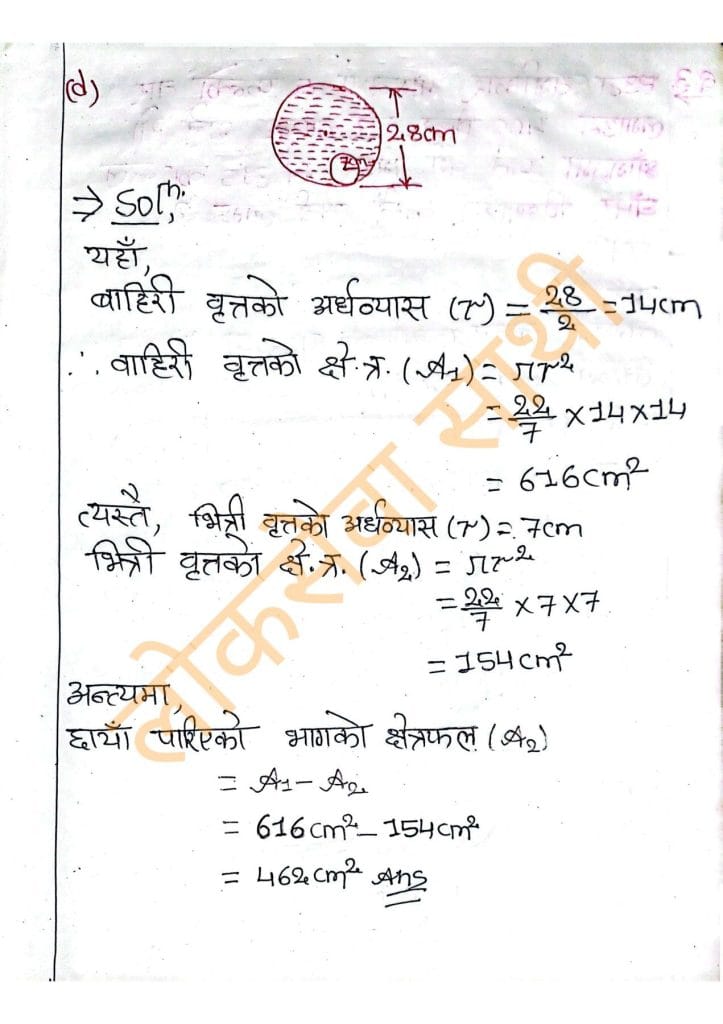 (d)
28cm
7cm
⇒ Sol^n.
यहाँ,
बाहिरी वृत्तको अर्धव्यास (r) = 28/2 = 14cm
∴ वाहिरी वृत्तको क्षे.त्र. (A₁) = πr²
= 22/7 × 14 × 14
= 616cm²
त्यस्तै, भित्री वृत्तको अर्धव्यास (r) = 7cm
भित्री वृत्तको क्षे.त्र. (A₂) = πr²
= 22/7 × 7 × 7
= 154cm²
अन्त्यमा,
छायाँ पारिएको भागको क्षेत्रफल (A₂)
= A₁ - A₂
= 616cm² - 154cm²
= 462cm² Ans
लोकसेवा साथी